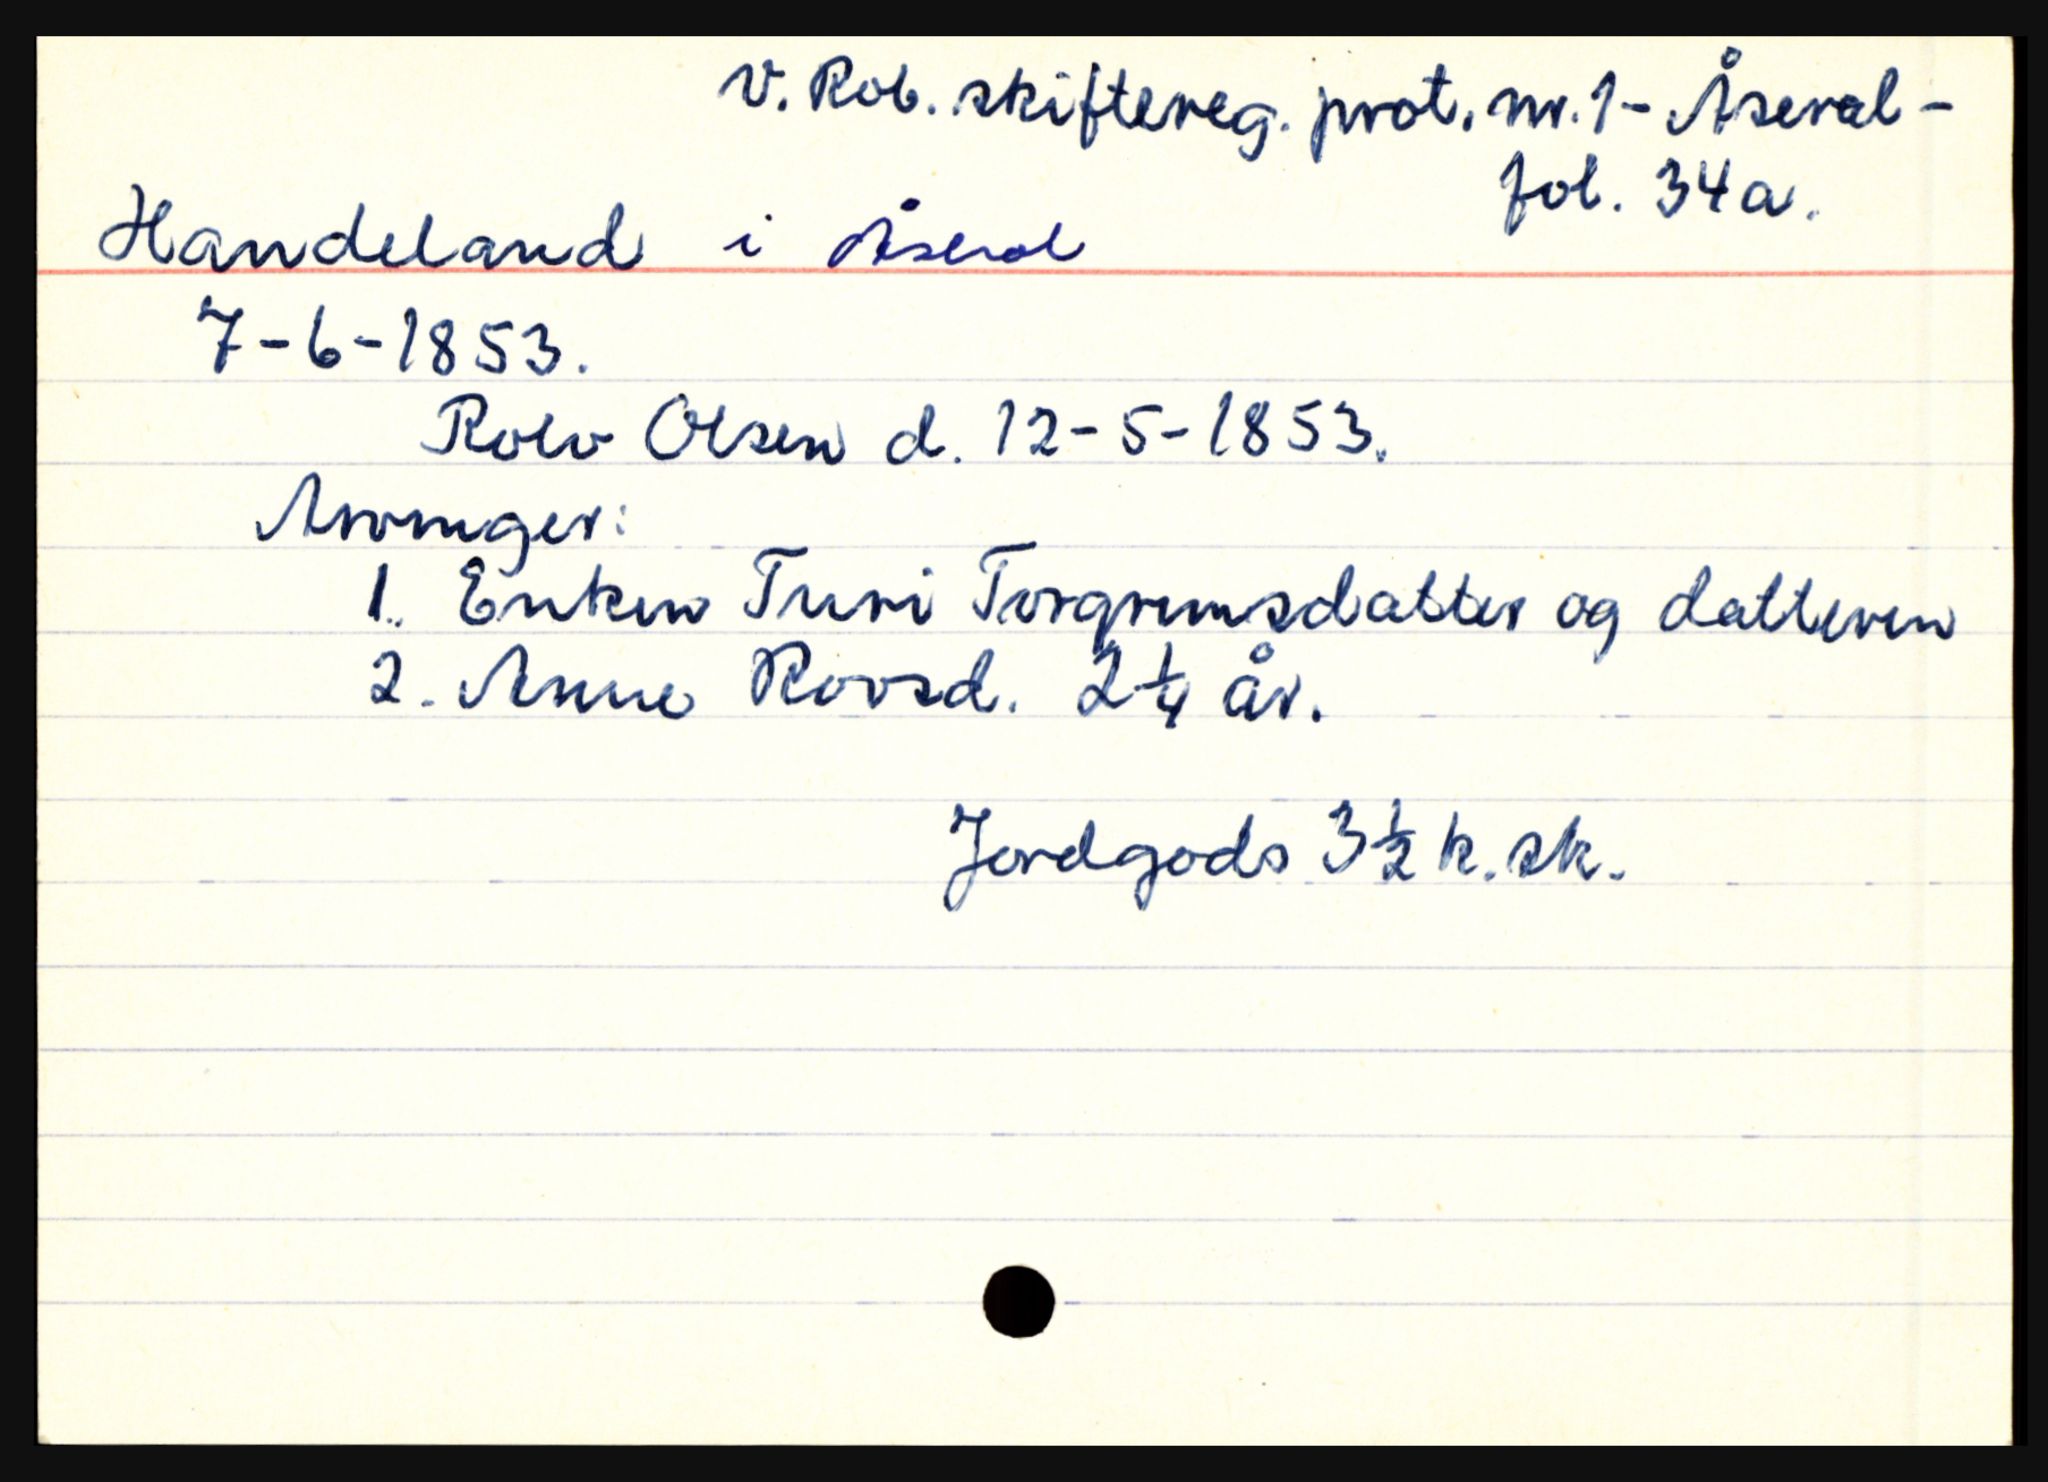 V. Rob. skiftereg. prot. nr. 1 - Åseral -
fol. 34a.
Handeland i Åseral
7-6-1853.
Rolv Olsen d. 12-5-1853.
Arvinger:
1. Enken Turi Torgrimsdatter og datteren
2. Anne Rovsd. 2 1/4 år.
Jordgods 3 1/2 k. sk.